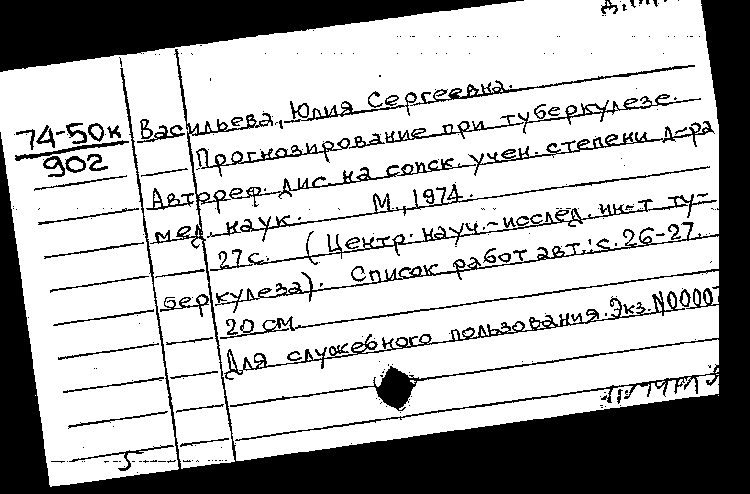 74-50к
902
Васильева, Юлия Сергеевна.
Прогнозирование при туберкулезе.
Автореф. дис. на соиск. учен. степени д-ра
мед. наук. М., 1974.
27 с. (Центр. науч.-исслед. ин-т ту-
беркулеза). Список работ авт.: с. 26-27.
20 см.
Для служебного пользования. Экз. N0000
5